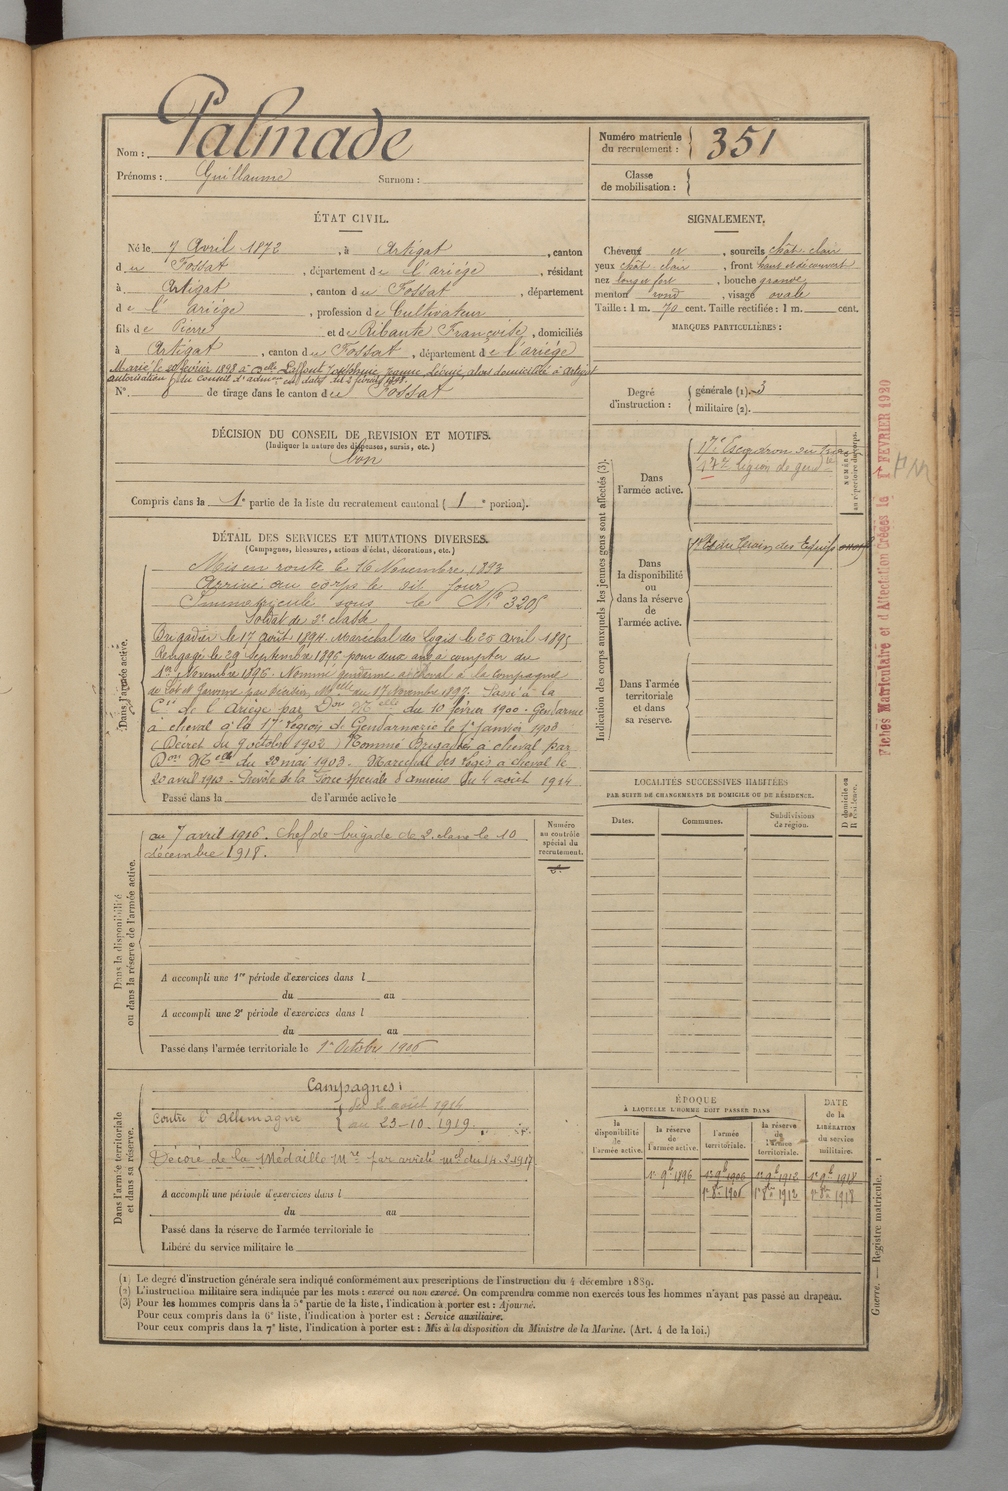 Nom : Palmade
Prénoms : Guillaume Surnom :
Numéro matricule du recrutement : 351
Classe de mobilisation :
ÉTAT CIVIL.
Né le 7 Avril 1872, à Artigat, canton
du Fossat, département de l'ariège, résidant
à Artigat, canton du Fossat, département
de l'ariège, profession de Cultivateur
fils de Pierre et de Ribaute Françoise, domiciliés
à Artigat, canton du Fossat, département de l'ariège
Marié le février 1898 à Delle Laffont Joséphine, Jeanne alors domiciliée à Artigat
autorisation du conseil d'admon en date du 2 février 1898.
N° 8 de tirage dans le canton du Fossat
SIGNALEMENT.
Cheveux et, sourcils chât. clair
yeux chât. clair, front haut et découvert
nez long et fort, bouche grande,
menton rond, visage ovale
Taille : 1 m. 70 cent. Taille rectifiée : 1 m. cent.
MARQUES PARTICULIÈRES :
Degré d'instruction :
générale (1). 3
militaire (2).
DÉCISION DU CONSEIL DE REVISION ET MOTIFS.
(Indiquer la nature des dispenses, sursis, etc.)
bon
Compris dans la 1e partie de la liste du recrutement cantonal (1e portion).
DÉTAIL DES SERVICES ET MUTATIONS DIVERSES.
(Campagnes, blessures, actions d'éclat, décorations, etc.)
Dans l'armée active.
Mis en route le 16 Novembre 1893
Arrivé au corps le dit jour
Immatriculé sous le N° 3205
Soldat de 2e classe
Brigadier le 17 août 1894. Maréchal des logis le 25 avril 1895
Rengagé le 29 Septembre 1896 pour deux ans à compter du
1er Novembre 1896. Nommé gendarme à cheval à la compagnie
de Lot et Garonne par décision Melle du 17 Novembre 1897. Passé à la
Cie de l'Ariège par Don Melle du 10 février 1900. Gendarme
à cheval à la 17e légion de Gendarmerie le 1er Janvier 1903
(Décret du 9 octobre 1902) Nommé Brigadier à cheval par
Don Melle du 20 mai 1903. Maréchal des logis à cheval le
20 avril 1913. Prévôté de la Force spéciale d'Amiens du 4 août 1914
Passé dans la de l'armée active le
Dans la disponibilité ou dans la réserve de l'armée active.
au 7 avril 1916. Chef de brigade de 2e classe le 10
décembre 1918.
Numéro au contrôle spécial du recrutement.
A accompli une 1re période d'exercices dans l
du au
A accompli une 2e période d'exercices dans l
du au
Passé dans l'armée territoriale le 1er Octobre 1906
Dans l'armée territoriale et dans sa réserve.
Campagnes :
Contre l'Allemagne { du 2 août 1914
au 23-10-1919.
Décoré de la Médaille Mre par arrêté mel du 14-2-1917
A accompli une période d'exercices dans l
du au
Passé dans la réserve de l'armée territoriale le
Libéré du service militaire le
Indication des corps auxquels les jeunes gens sont affectés (3).
NUMÉROS au répertoire du corps.
Dans l'armée active.
17e Escadron du Train
17e légion de gendie
Dans la disponibilité ou dans la réserve de l'armée active.
17e Et du Train des Equips
Dans l'armée territoriale et dans sa réserve.
LOCALITÉS SUCCESSIVES HABITÉES
PAR SUITE DE CHANGEMENTS DE DOMICILE OU DE RÉSIDENCE.
Dates. Communes. Subdivisions de région. D domicile ou R résidence.
ÉPOQUE
À LAQUELLE L'HOMME DOIT PASSER DANS
la disponibilité de l'armée active.
la réserve de l'armée active.
l'armée territoriale.
la réserve de l'armée territoriale.
DATE de la LIBÉRATION du service militaire.
1er 9b 1896 1er 9b 1906 1er 9b 1912 1er 9b 1918
1er 8bre 1906 1er 8bre 1912 1er 8bre 1918
(1) Le degré d'instruction générale sera indiqué conformément aux prescriptions de l'instruction du 4 décembre 1889.
(2) L'instruction militaire sera indiquée par les mots : exercé ou non exercé. On comprendra comme non exercés tous les hommes n'ayant pas passé au drapeau.
(3) Pour les hommes compris dans la 5e partie de la liste, l'indication à porter est : Ajourné.
Pour ceux compris dans la 6e liste, l'indication à porter est : Service auxiliaire.
Pour ceux compris dans la 7e liste, l'indication à porter est : Mis à la disposition du Ministre de la Marine. (Art. 4 de la loi.)
Guerre. — Registre matricule. 1
Fiches Matriculaire et d'Affectation Créées le 1er FÉVRIER 1920